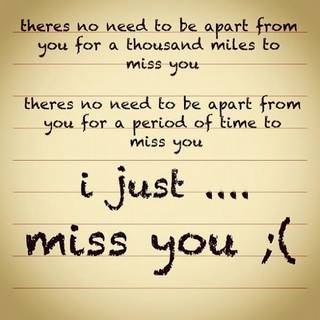 theres no need to be apart from
you for a thousand miles to
miss you
theres no need to be apart from
you for a period of time to
miss you
i just ....
miss you ;(